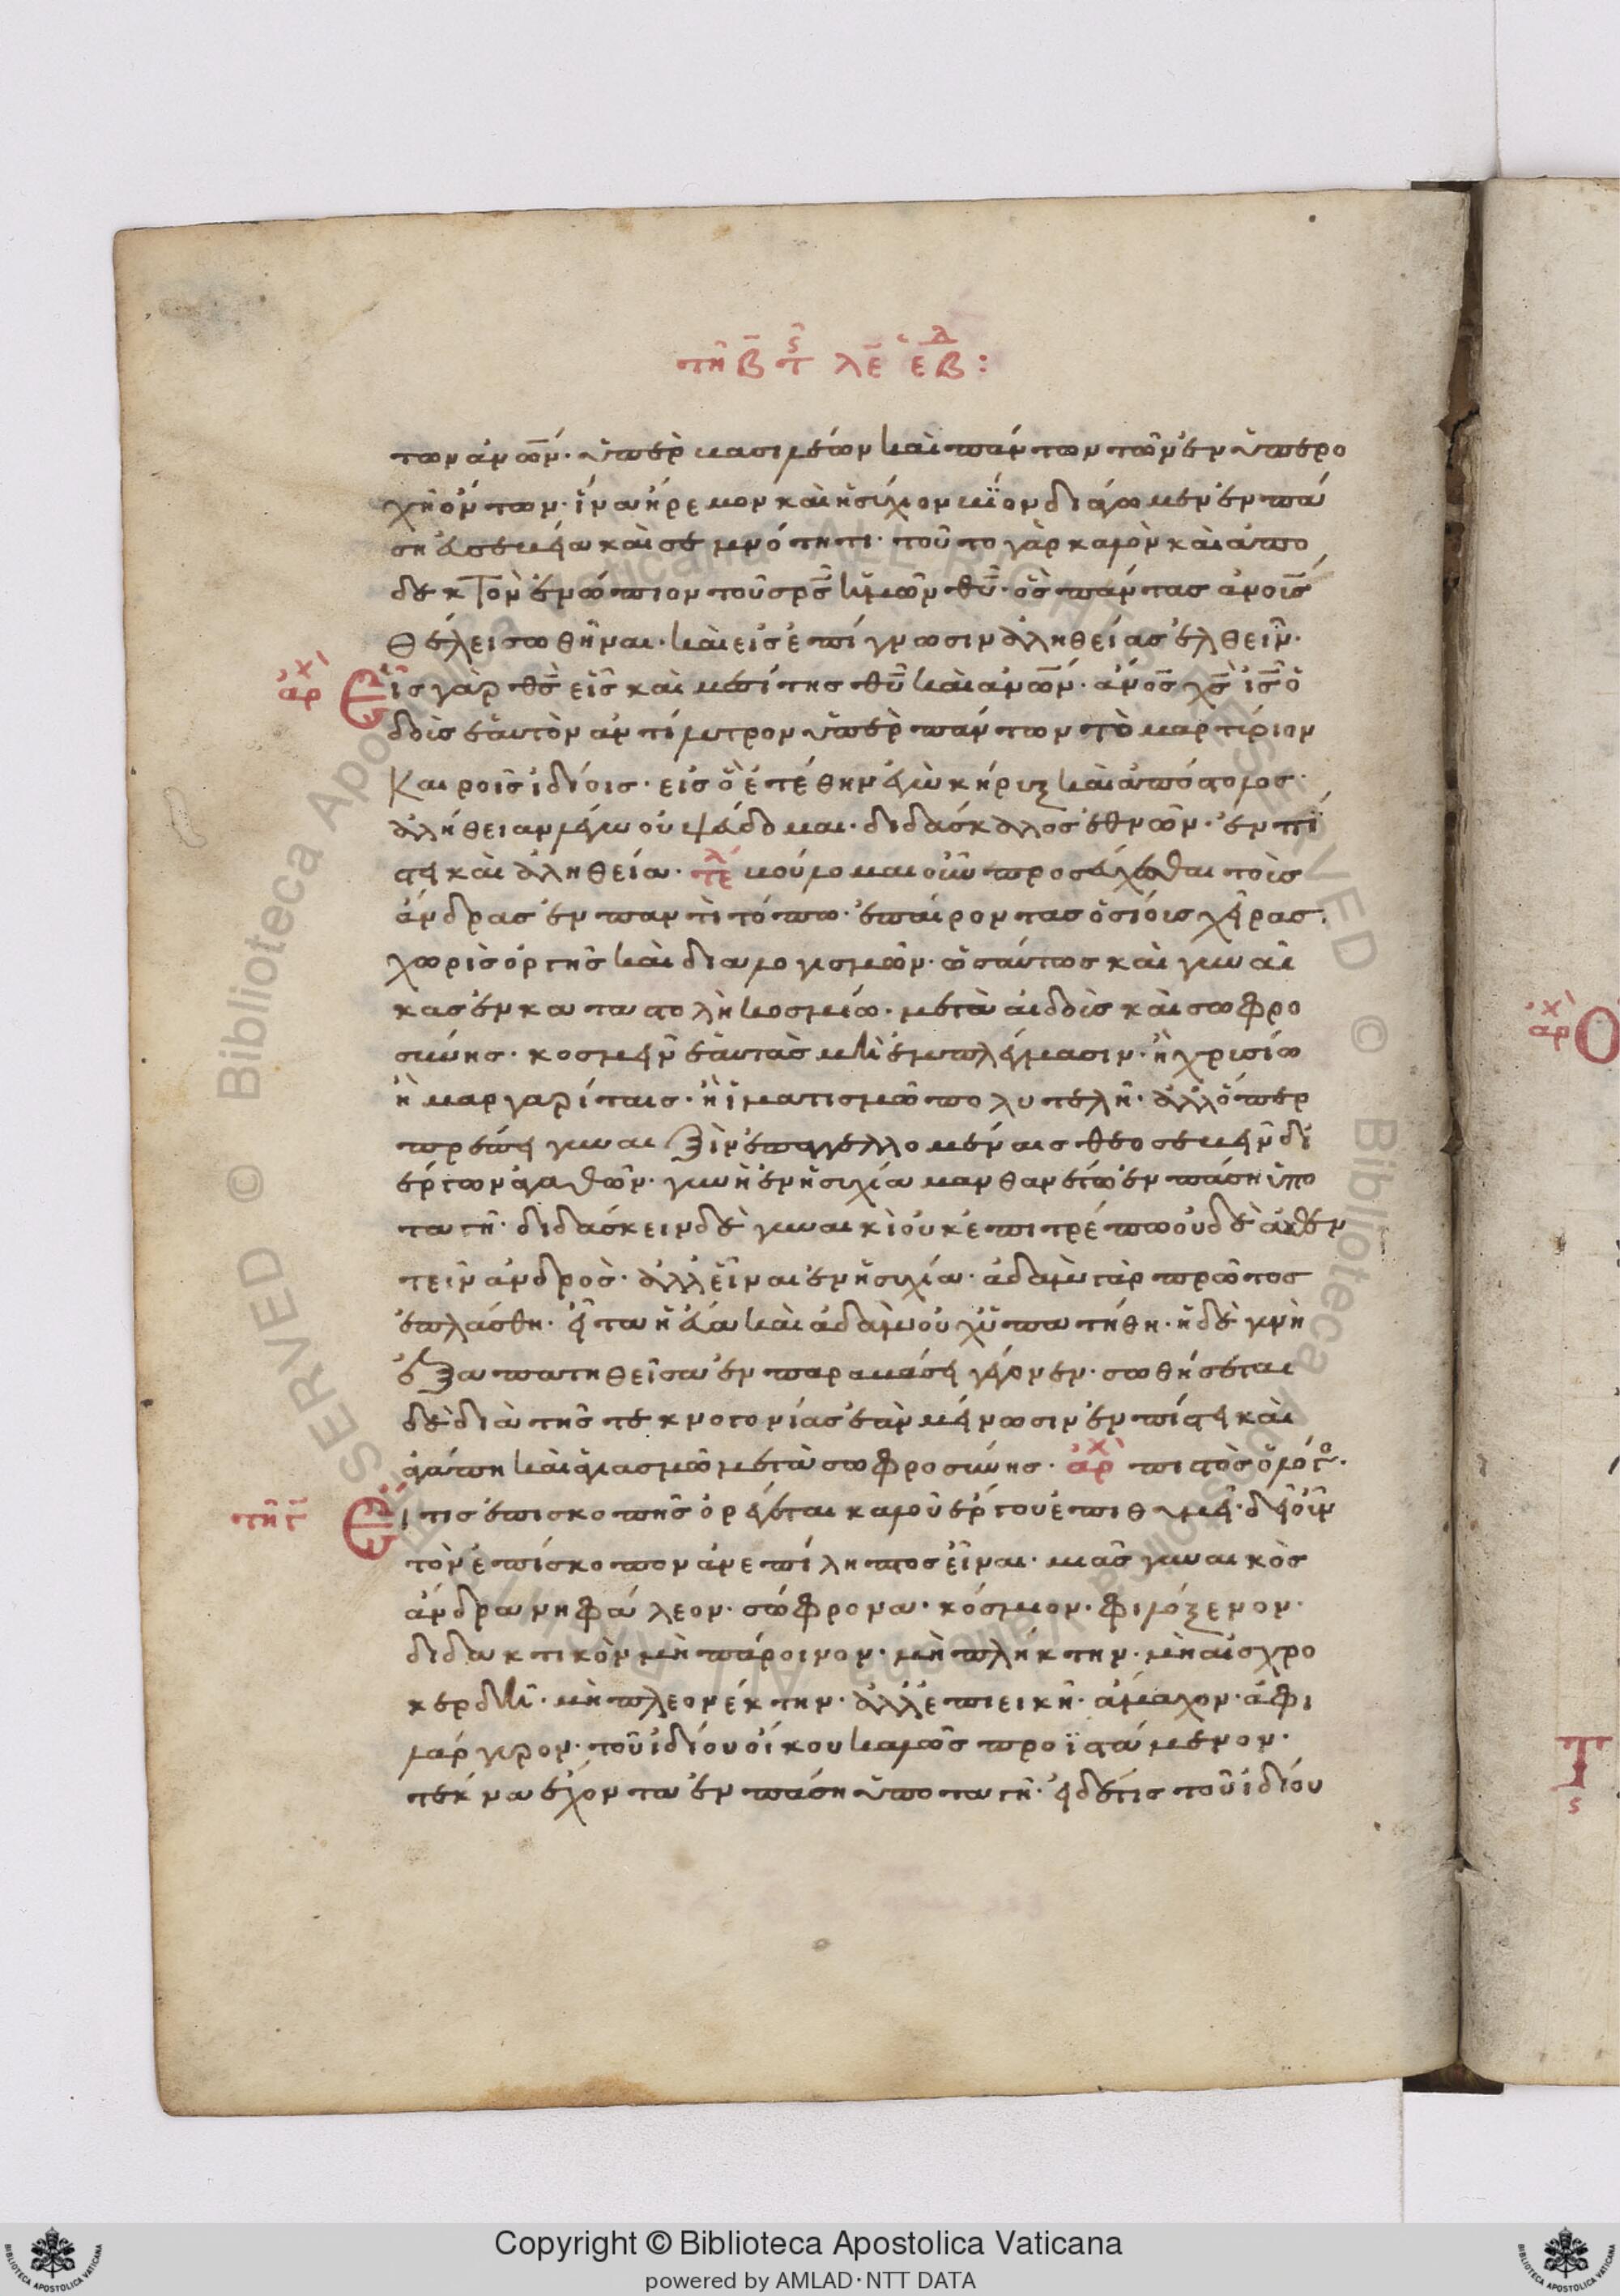 τῇ β̄ τ ς λε ἑβδ :
των ἀνω̅ν· ὑπὲρ βασιλέων καὶ πάντων τῶν ἐν ὑπερο
χῇ ὄντων· ἵνα ἤρεμον καὶ ἡσύχιον βίον διάγωμεν ἐν πά
ση εὐσεβεία καὶ σεμνότητι· τοῦτο γὰρ καλὸν καὶ ἀπο
δεκτὸν ἐνώπιον τοῦ σρ̅ς ἡμῶν θυ̅· ὃς πάντας ἀνοι̅ς
θέλει σωθῆναι· καὶ εἰς ἐπίγνωσιν ἀληθείας ἐλθεῖν·
ἀρχ
Εἷς γὰρ θς̅ εἷς καὶ μεσίτης θυ̅ καὶ ἀνω̅ν· ἀνος̅ χς̅ ις̅ ὁ
δοὺς ἑαυτὸν ἀντίλυτρον ὑπὲρ πάντων τὸ μαρτύριον
καιροῖς ἰδίοις· εἰς ὃ ἐτέθην ἐγὼ κήρυξ καὶ ἀπόστολος·
ἀλήθειαν λέγω οὐ ψεύδομαι· διδάσκαλος ἐθνῶν· ἐν πί
στει καὶ ἀληθεία· τελ βούλομαι οὖν προσεύχεσθαι τοὺς
ἄνδρας ἐν παντὶ τόπω· ἐπαίροντας ὁσίους χεῖρας·
χωρὶς ὀργῆς καὶ διαλογισμῶν· ὡσαύτως καὶ γυναῖ
κας ἐν καταστολῆ κοσμίω· μετὰ αἰδοὺς καὶ σωφρο
σύνης· κοσμεῖν ἑαυτὰς μὴ ἐμπλέγμασιν· ἢ χρυσίω
ἢ μαργαρίταις· ἢ ἱματισμῶ πολυτελῆ· ἀλλ᾽ ὅπερ
πρέπει γυναιξὶν ἐπαγγελλομέναις θεοσεβεῖν δι᾽
ἔργων ἀγαθῶν· γυνὴ ἐν ἡσυχία μανθανέτω ἐν πάση ὑπο
ταγῆ· διδάσκειν δὲ γυναικὶ οὐκ ἐπιτρέπω οὐδὲ αὐθεν
τεῖν ἀνδρὸς· ἀλλ᾽ εἶναι ἐν ἡσυχία· ἀδὰμ γὰρ πρῶτος
ἐπλάσθη· εἶτα ἡ εὔα καὶ ἀδὰμ οὐχ ὑπατήθη· ἡ δὲ γυνὴ
ἐξαπατηθεῖσα ἐν παραβάσει γέγονεν· σωθήσεται
δὲ διὰ τῆς τεκνογονίας ἐὰν μείνωσιν ἐν πίστει καὶ
ἀγάπη καὶ ἁγιασμῶ μετὰ σωφροσύνης· ἀρχ πιστὸς ὁ λόγο·
τῇ γ̅
Εἴ τις ἐπισκοπῆς ὀρέγεται καλοῦ ἔργου ἐπιθυμεῖ· δεῖ οὖν
τὸν ἐπίσκοπον ἀνεπίληπτος εἶναι· μιᾶς γυναικὸς
ἄνδρα νηφάλεον· σώφρονα· κόσμιον· φιλόξενον·
διδακτικὸν μὴ πάροινον· μὴ πλήκτην· μὴ αἰσχρο
κερδῆ· μὴ πλεονέκτην· ἀλλ᾽ ἐπιεικῆ· ἄμαχον· ἀφι
λάργυρον· τοῦ ἰδίου οἴκου καλῶς προϊστάμενον·
τέκνα ἔχοντα ἐν πάση ὑποταγῆ· εἰ δέ τις τοῦ ἰδίου
ἀρχ
Ο
Τ
ς
Copyright © Biblioteca Apostolica Vaticana
powered by AMLAD·NTT DATA